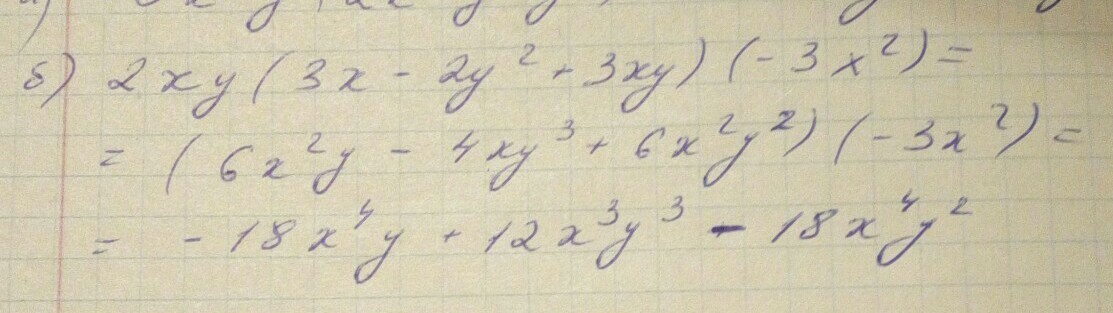 б) 2xy(3x - 2y² + 3xy)(-3x²) =
= (6x²y - 4xy³ + 6x²y²)(-3x²) =
= -18x⁴y + 12x³y³ - 18x⁴y²